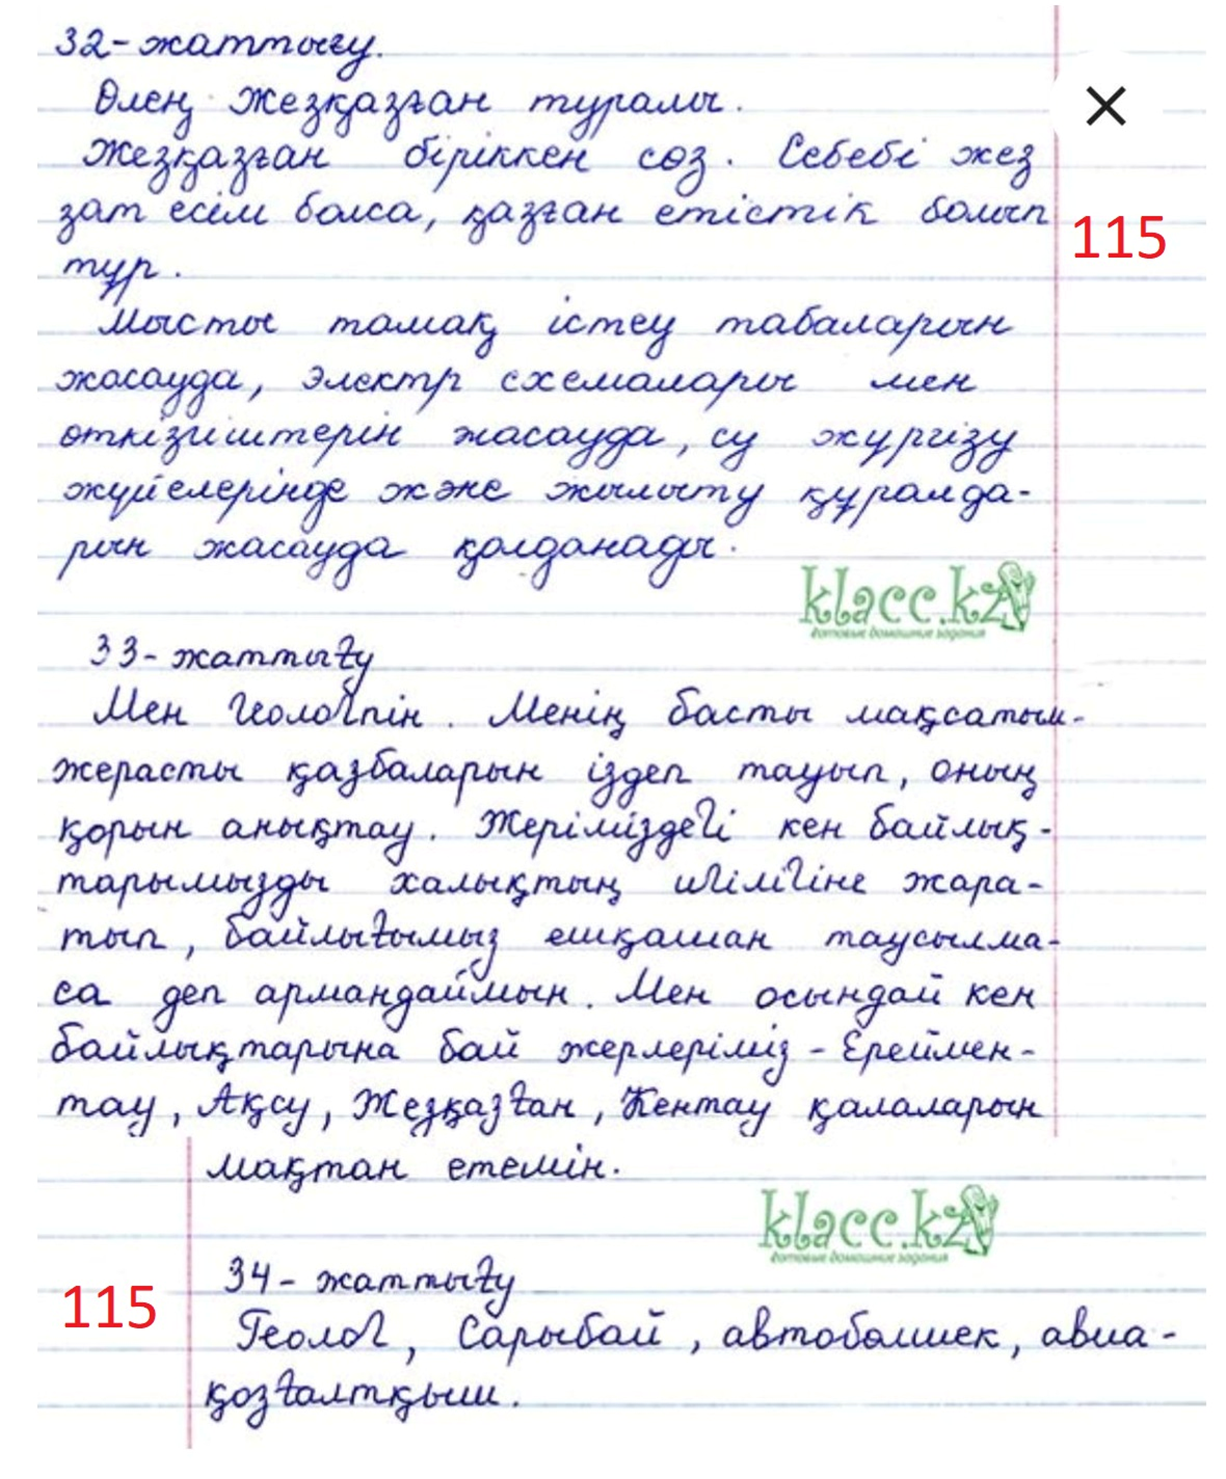 32-жаттығу.
Өлең Жезқазған туралы.
Жезқазған біріккен сөз. Себебі жез
зат есім болса, қазған етістік болып
тұр.
115
Мысты тамақ істеу табаларын
жасауда, электр схемалары мен
өткізгіштерін жасауда, су жүргізу
жүйелерінде және жылыту құралда-
рын жасауда қолданады.
klacc.kz
готовые домашние задания
33-жаттығу
Мен геологпін. Менің басты мақсатым-
жерасты қазбаларын іздеп тауып, оның
қорын анықтау. Жеріміздегі кен байлық-
тарымызды халықтың игілігіне жара-
тып, байлығымыз ешқашан таусылма-
са деп армандаймын. Мен осындай кен
байлықтарына бай жерлеріміз - Ереймен-
тау, Ақсу, Жезқазған, Кентау қалаларын
мақтан етемін.
klacc.kz
готовые домашние задания
34- жаттығу
115
Геолог, Сарыбай, автобөлшек, авиа-
қозғалтқыш.